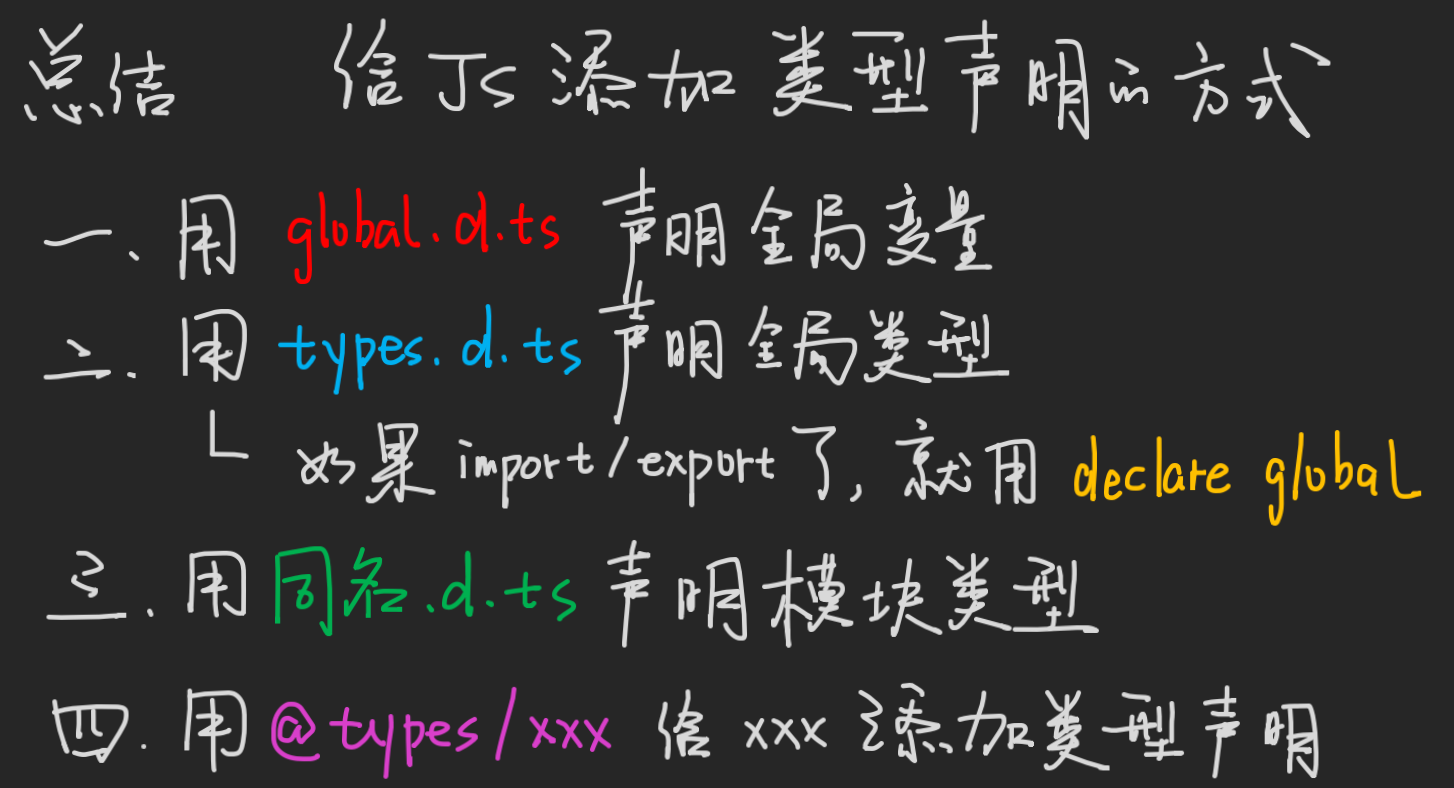 总结 给JS添加类型声明的方式
一、用 global.d.ts 声明全局变量
二、用 types.d.ts 声明全局类型
如果 import/export 了, 就用 declare global
三、用同名.d.ts 声明模块类型
四、用@types/xxx 给 xxx 添加类型声明